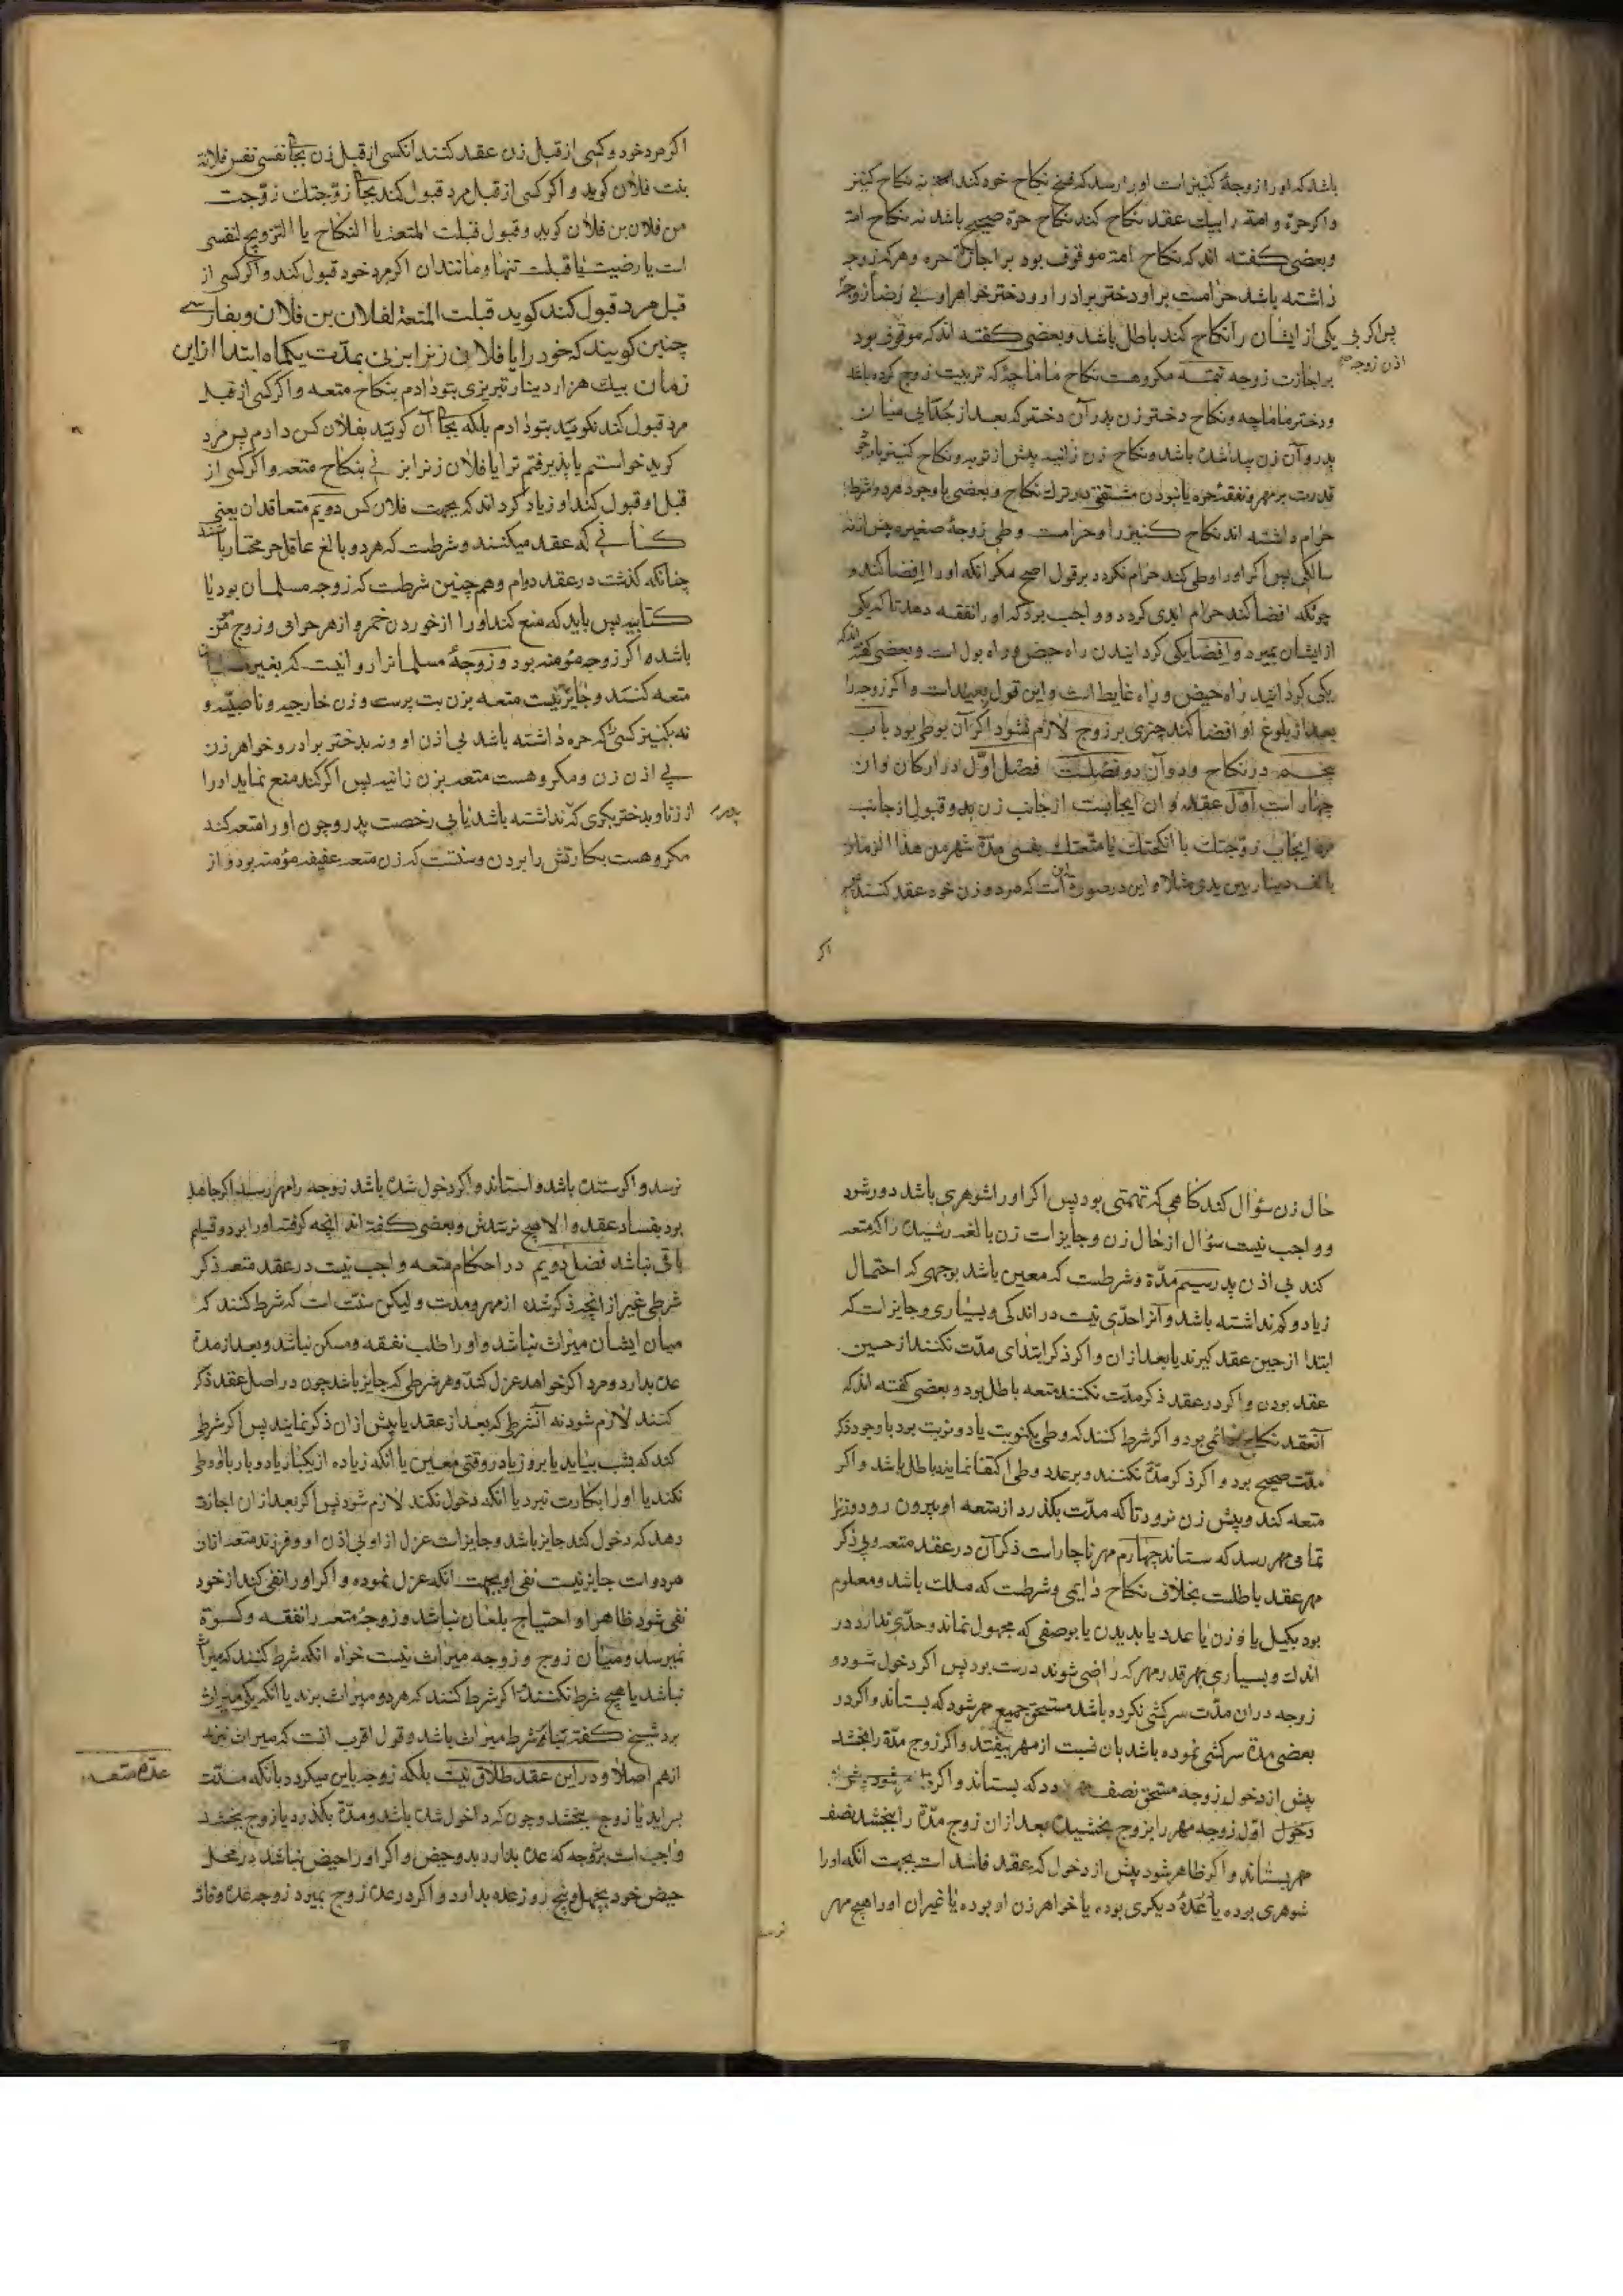 باشد که او را زوجهٔ کنیز است او را رسد که فسخ نکاح خود کند نه نکاح کنیز
واکر حرّه و امة را بیك عقد نکاح کند نکاح حرّه صحیح باشد نه نکاح امة
وبعضی کفته اند که نکاح امة موقوف بود بر اجازت حره وهرکه زوجهٔ
داشته باشد حرامست بر او دختر برادر او و دختر خواهر او بی رضا زوجه
پس اکر بی
یکی از ایشان را نکاح کند باطل باشد وبعضی کفته اند که موقوف بود
اذن زوجه
بر اجازت زوجه تتمه مکروهست نکاح ماماچهٔ که تربیت زوج کرده باشد
ودختر ماماچه ونکاح دختر زن پدر آن دختر که بعد از جدایی میان
پدر و آن زن پیدا شده باشد ونکاح زن زانیه پیش از توبه ونکاح کنیز با وجود
قدرت بر مهر ونفقهٔ حره یا نبودن مشقتی در ترك نکاح وبعضی با وجود هر دو شرط
حرام داشته اند نکاح کنیز را وحرامست وطی زوجهٔ صغیره پیش از نه
سالکی پس اکر او را وطی کند حرام نکردد بر قول اصح مکر انکه او را افضا کند و
چونکه افضا کند حرام ابدی کردد و واجب بود که او را نفقه دهد تا که یکی
از ایشان بمیرد وافضا یکی کردانیدن راه حیض و راه بول است وبعضی کفته اند که
یکی کردانید راه حیض و راه غایط است واین قول بعید است واکر زوجه را
بعد از بلوغ او افضا کند چیزی بر زوج لازم نشود اکر آن بوطی بود باب
پنجم در نکاح ودر آن دو فصلست فصل اوّل در ارکان وان
چهار است اوّل عقد وان ایجابست از جانب زن بود وقبول از جانب
مرد ایجاب زوّجتك یا انکحتك یا متّعتك نفسی مدّة شهر من هذا الزمان
بالف دینار بین یدی مثلا واین در صورة است که مرد و زن خود عقد کنند
اکر
اکر مرد خود وکسی از قبل زن عقد کنند انکس از قبل زن بجای نفسی نفس فلانة
بنت فلان کوید واکر کسی از قبل مرد قبول کند بجای زوّجتك زوّجت
من فلان بن فلان کوید وقبول قبلت المتعة یا النکاح یا التزویج لنفسی
است یا رضیت یا قبلت تنها ومانند ان اکر مرد خود قبول کند واکر کسی از
قبل مرد قبول کند کوید قبلت المتعة لفلان بن فلان وبفارسی
چنین کویند که خود را یا فلانی زنرا بزنی بمدّت یکماه ابتدا از این
زمان بیك هزار دینار تبریزی بتو دادم بنکاح متعه واکر کسی از قبل
مرد قبول کند نکویند بتو دادم بلکه بجای آن کویند بفلان کس دادم پس مرد
کوید خواستم یا پذیرفتم ترا یا فلان زنرا بزنی بنکاح متعه واکر کسی از
قبل او قبول کند او زیاد کرداند که بجهت فلان کس دویم متعاقدان یعنی
کسانی که عقد میکنند وشرطست که هر دو بالغ عاقل حر مختار باشند
چنانکه کذشت در عقد دوام وهم چنین شرطست که زوجه مسلمان بود یا
کتابیه پس باید که منع کند او را از خوردن خمر و از هر حرامی و زوج مؤمن
باشد اکر زوجه مؤمنه بود و زوجهٔ مسلمانرا روا نیست که بغیر مسلمان
متعه کنند وجایز نیست متعه بزن بت پرست وزن خارجیه وناصبیّه و
نه بکنیز کسی که حره داشته باشد بی اذن او ونه بدختر برادر وخواهر زن
بی اذن زن ومکروهست متعه بزن زانیه پس اکر کند منع نماید او را
از زنا وبدختر بکری که نداشته باشد یا بی رخصت پدر وچون او را متعه کند
پدر
مکروهست بکارتش را بردن وسنتست که زن متعه عفیفه مؤمنه بود و از
حال زن سؤال کند کاهی که تهمتی بود پس اکر او را شوهری باشد دور شود
و واجب نیست سؤال از حال زن وجایز است زن بالغه رشیده را که متعه
کند بی اذن پدر سیم مدّة وشرطست که معین باشد بوجهی که احتمال
زیاد وکم نداشته باشد وآنرا حدّی نیست در اندکی وبسیاری وجایز است که
ابتدا از حین عقد کیرند یا بعد از ان واکر ذکر ابتدای مدّت نکنند از حین
عقد بود ن واکر در عقد ذکر مدّت نکنند متعه باطل بود وبعضی کفته اند که
آنعقد نکاح دائمی بود واکر شرط کنند که وطی یکنوبت یا دو نوبت بود با وجود ذکر
مدّت صحیح بود واکر ذکر مدّة نکنند و بر عدد وطی اکتفا نمایند باطل باشد واکر
متعه کند وپیش زن نرود تا که مدّت بکذرد از متعه او بیرون رود وزنرا
تمامی مهر رسد که ستاند چهارم مهر ناچار است ذکر آن در عقد متعه وبی ذکر
مهر عقد باطلست بخلاف نکاح دایمی وشرطست که ملك باشد ومعلوم
بود بکیل یا وزن یا عدد یا بدیدن یا بوصفی که مجهول نماند وحدّی ندارد در
اندك وبسیاری بهر قدر مهر که راضی شوند درست بود پس اکر دخول شود و
زوجه در ان مدّت سرکشی نکرده باشد مستحق جمیع مهر شود که بستاند واکر در
بعضی مدّة سرکشی نموده باشد بان نسبت از مهر بیفتد واکر زوج مدّة را بخشد
پیش از دخول زوجه مستحق نصف مهر بود که بستاند واکر
دخول اوّل زوجه مهر را بزوج بخشیده بعد از ان زوج مدّة را بخشد نصف
مهر بستاند واکر ظاهر شود پیش از دخول که عقد فاسد است بجهت انکه او را
شوهری بوده یا عدهٔ دیکری بوده یا خواهر زن او بوده یا غیر ان او را هیچ مهر
نرسد
نرسد واکر ستده باشد واستاند واکر دخول شده باشد زوجه را مهر رسد اکر جاهل
بود بفساد عقد والا هیچ نرسدش وبعضی کفته اند انچه کرفته او را بود وقیلم
باقی نباشد فصل دویم در احکام متعه واجب نیست در عقد متعه ذکر
شرطی غیر از انچه ذکر شده از مهر ومدت ولیکن سنّت است که شرط کنند که
میان ایشان میراث نباشد و او را طلب نفقه ومسکن نباشد وبعد از مدة
عده بدارد ومرد اکر خواهد عزل کند وهر شرطی که جایز باشد چون در اصل عقد ذکر
کنند لازم شود نه آنشرط که بعد از عقد یا پیش از ان ذکر نمایند پس اکر شرط
کند که بشب بیاید یا بروز یا در وقتی معین یا انکه زیاده از یکبار یا دو بار با او وطی
نکند یا او را بکارت نبرد یا انکه دخول نکند لازم شود پس اکر بعد از ان اجازت
دهد که دخول کند جایز باشد وجایز است عزل از او بی اذن او وفرزند متعه از ان
هر دو است جایز نیست نفی او بجهت انکه عزل نموده واکر او را نفی کند از خود
نفی شود ظاهرا و احتیاج بلعان نباشد وزوجهٔ متعه را نفقه وکسوة
نمیرسد ومیان زوج وزوجه میراث نیست خواه انکه شرط کنند که میراث
نباشد یا هیچ شرط نکنند اما اکر شرط کنند که هر دو میراث برند یا انکه یکی میراث
برد شیخ کفته شرط میراث باشد وقول اقرب انست که میراث نبرند
از هم اصلا ودر این عقد طلاق نیست بلکه زوجه باین میکردد بانکه مدّت
عدّة متعه
براید یا زوج بخشد وچون که داخول شده باشد ومدّة بکذرد یا زوج بخشد
واجب است بر زوجه که عده بدارد بدو حیض واکر او را حیض نباشد در محل
حیض خود بچهل وپنج روز عده بدارد واکر در عده زوج بمیرد زوجه عده وفات